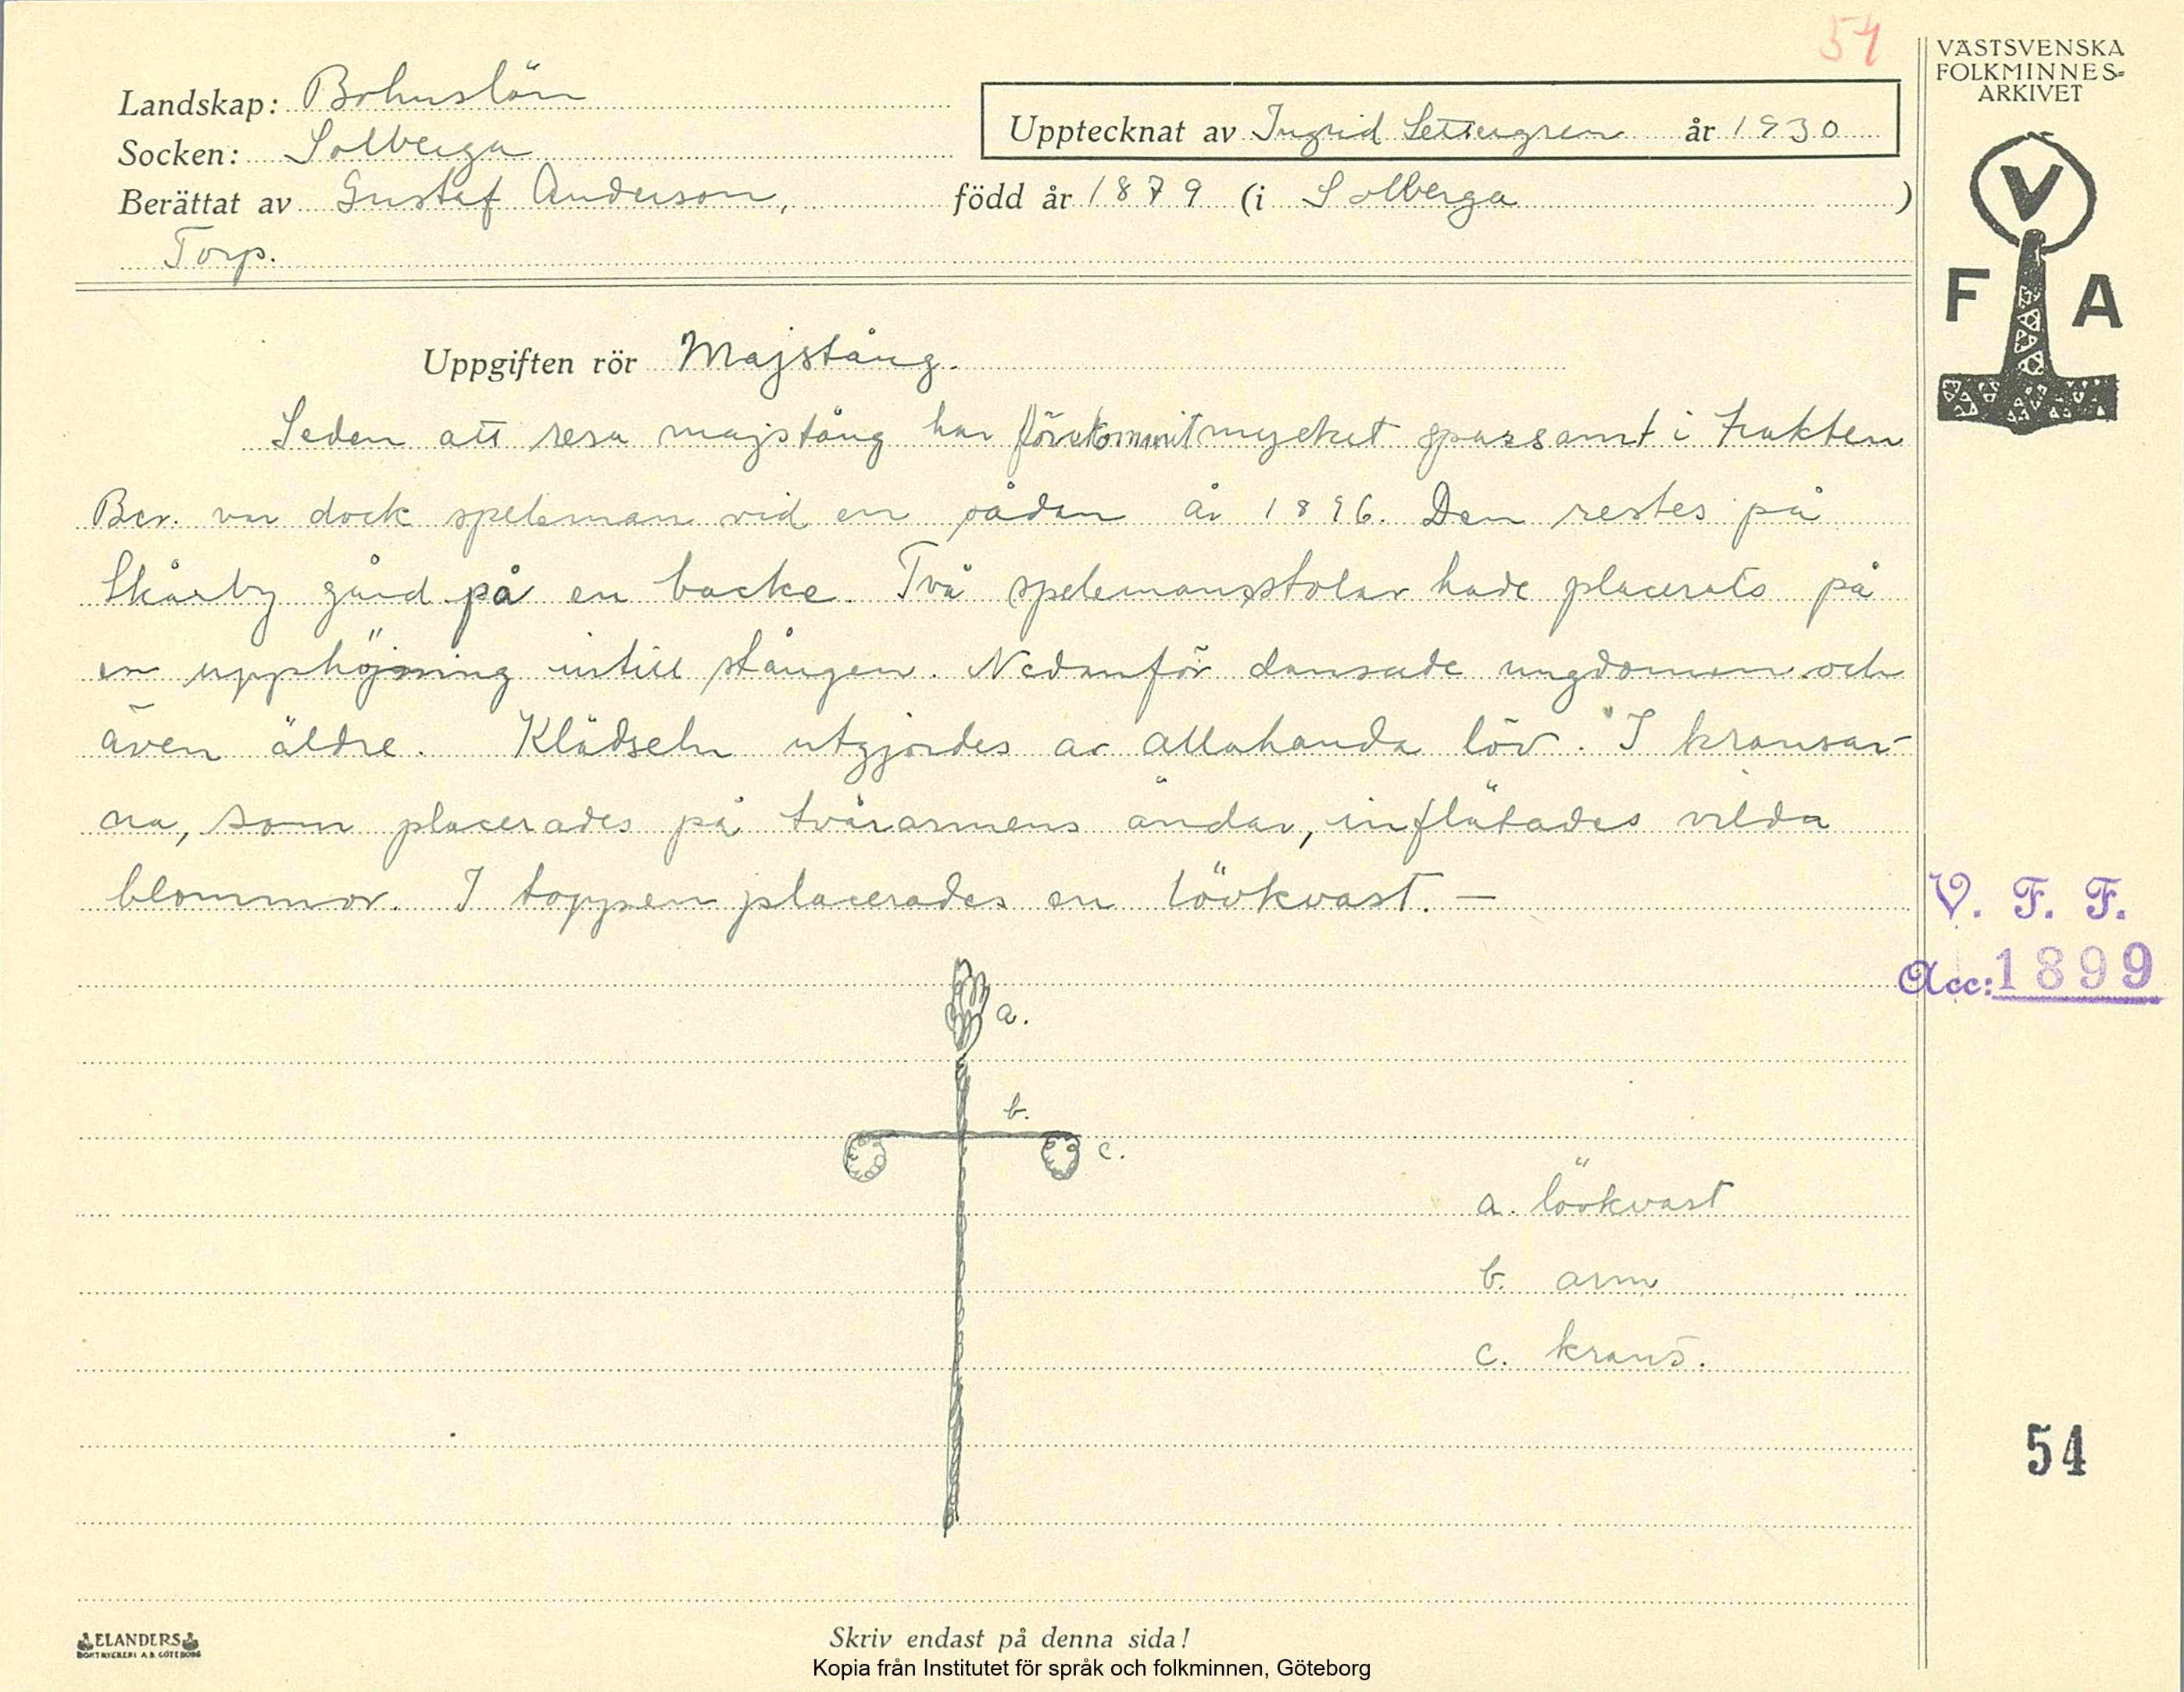 54
VÄSTSVENSKA
FOLKMINNES-
ARKIVET
Landskap: Bohuslän
Socken: Solberga
Upptecknat av Ingrid Settergren år 1930
Berättat av Gustaf Anderson, född år 1879 (i Solberga )
Torp.
V
F A
Uppgiften rör Majstång.
Seden att resa majstång har förekommit mycket sparsamt i trakten
Ber. var dock speleman vid en sådan år 1896. Den restes på
Skårby gård på en backe. Två spelemansstolar hade placerats på
en upphöjning intill stången. Nedanför dansade ungdomen och
även äldre. Klädseln utgjordes av allahanda löv. I kransar-
na, som placerades på tvärarmens ändar, inflätades vilda
blommor. I toppen placerades en lövkvast. —
V. F. F.
Acc: 1899
a.
b.
c.
a. lövkvast
b. arm
c. krans.
54
ELANDERS
BOKTRYCKERI A.B. GÖTEBORG
Skriv endast på denna sida!
Kopia från Institutet för språk och folkminnen, Göteborg